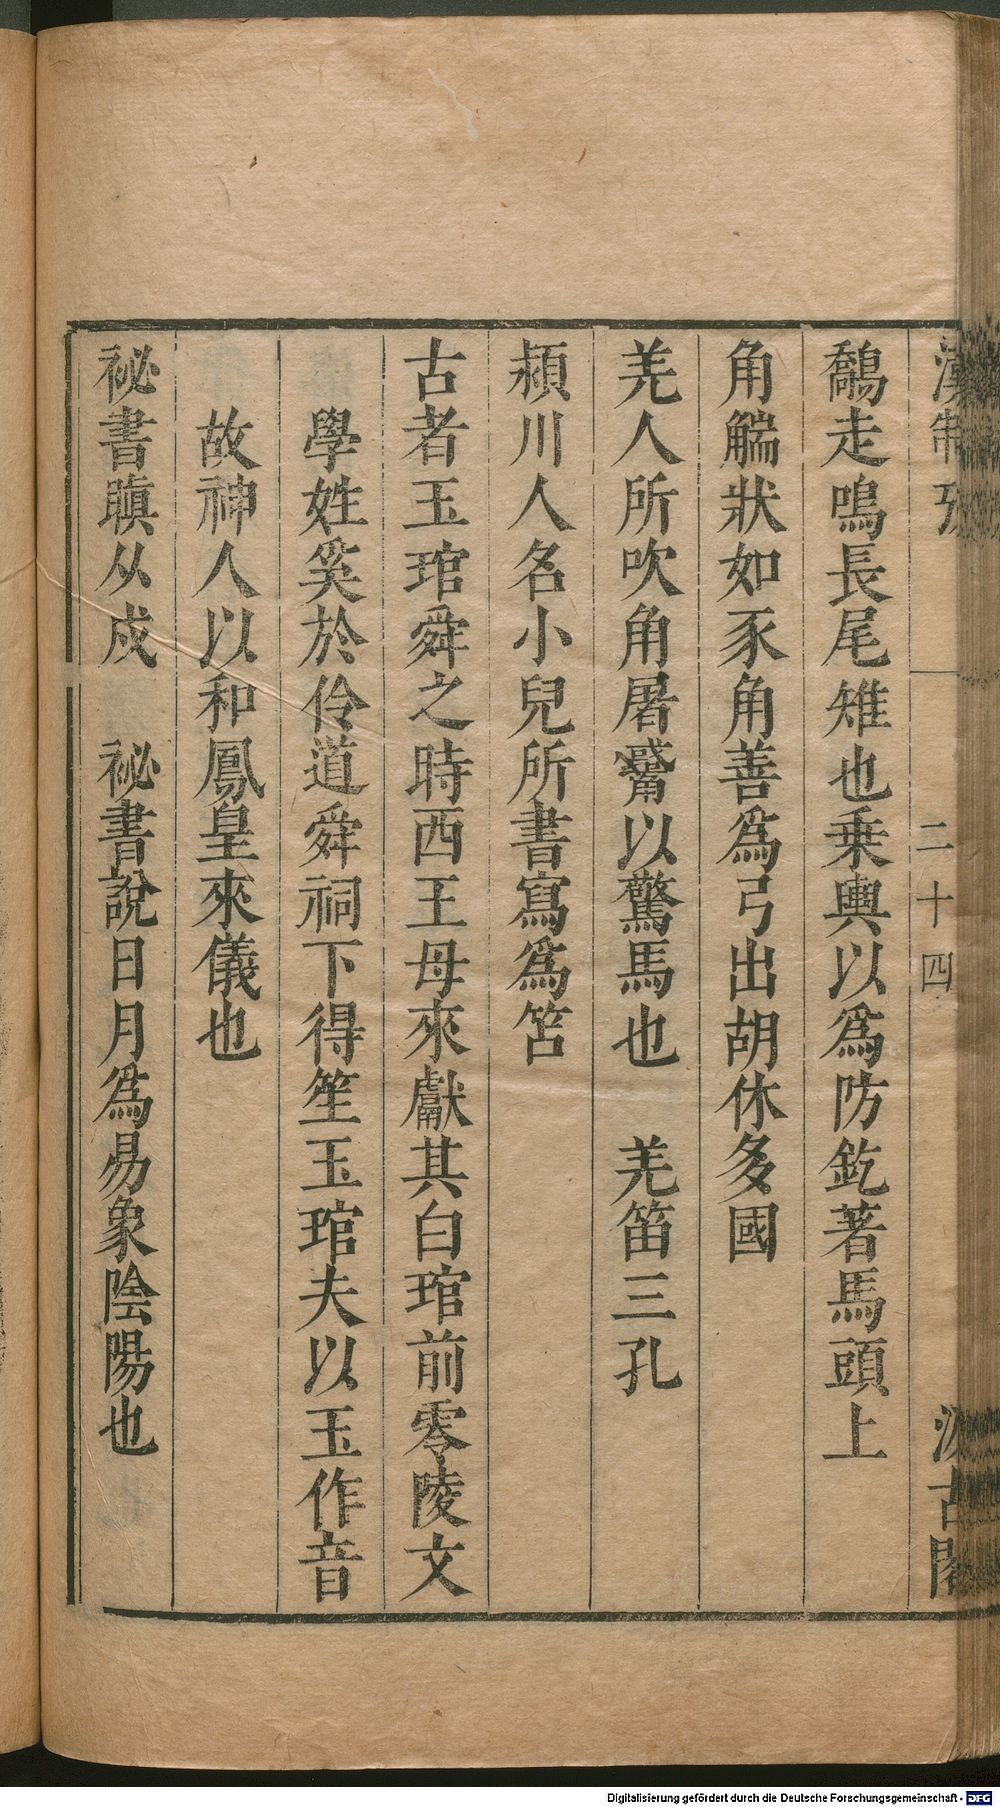 漢制攷
二十四
汲古閣
鷮走鳴長尾雉也乗輿以爲防釳著馬頭上
角觿狀如豕角善爲弓出胡休多國
羌人所吹角屠觱以驚馬也　羌笛三孔
潁川人名小兒所書寫爲笘
古者玉琯舜之時西王母來獻其白琯前零陵文
學姓奚於伶道舜祠下得笙玉琯夫以玉作音
故神人以和鳳皇來儀也
祕書瞋从戍　祕書說日月爲易象陰陽也
Digitalisierung gefördert durch die Deutsche Forschungsgemeinschaft - DFG